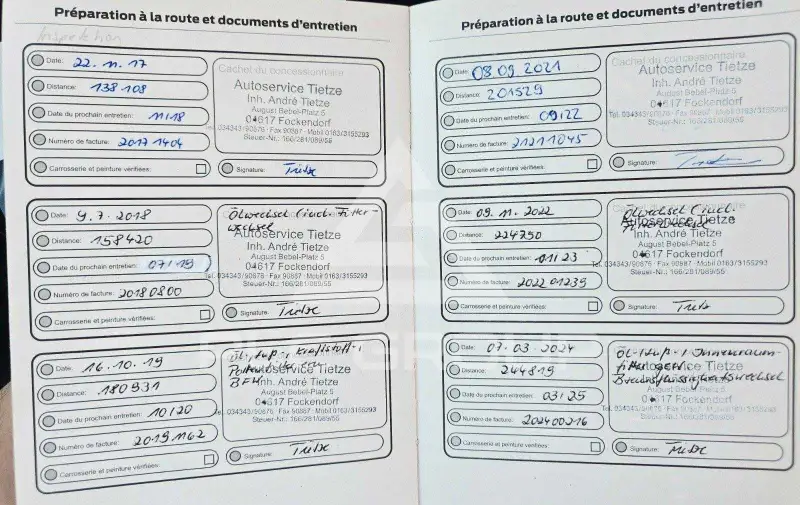 Préparation à la route et documents d'entretien
Inspektion
Date: 22.11.17
Distance: 138 108
Date du prochain entretien: 11/18
Numéro de facture: 2017 1404
Carrosserie et peinture vérifiées:
Cachet du concessionnaire
Autoservice Tietze
Inh. André Tietze
August Bebel-Platz 5
04617 Fockendorf
Tel. 034343/90876 · Fax 90887 · Mobil 0163/3155293
Steuer-Nr.: 166/281/089/55
Signature: Tietze
Date: 9.7.2018
Distance: 158420
Date du prochain entretien: 07/19
Numéro de facture: 20180800
Carrosserie et peinture vérifiées:
Ölwechsel (incl. Filter-
wechsel
Autoservice Tietze
Inh. André Tietze
August Bebel-Platz 5
04617 Fockendorf
Tel. 034343/90876 · Fax 90887 · Mobil 0163/3155293
Steuer-Nr.: 166/281/089/55
Signature: Tietze
Date: 16.10.19
Distance: 180931
Date du prochain entretien: 10/20
Numéro de facture: 2019 1162
Carrosserie et peinture vérifiées:
Öl-, Lup-, Kraftstoff-,
BFW
Autoservice Tietze
Inh. André Tietze
August Bebel-Platz 5
04617 Fockendorf
Tel. 034343/90876 · Fax 90887 · Mobil 0163/3155293
Steuer-Nr.: 166/281/089/55
Signature: Tietze
Préparation à la route et documents d'entretien
Date: 08.09.2021
Distance: 201529
Date du prochain entretien: 09/22
Numéro de facture: 21211045
Carrosserie et peinture vérifiées:
Cachet du concessionnaire
Autoservice Tietze
Inh. André Tietze
August Bebel-Platz 5
04617 Fockendorf
Tel. 034343/90876 · Fax 90887 · Mobil 0163/3155293
Steuer-Nr.: 166/281/089/55
Signature:
Date: 09.11.2022
Distance: 224750
Date du prochain entretien: 01/23
Numéro de facture: 2022 01239
Carrosserie et peinture vérifiées:
Cachet du concessionnaire
Ölwechsel (incl.
Filterwechsel
Autoservice Tietze
Inh. André Tietze
August Bebel-Platz 5
04617 Fockendorf
Tel. 034343/90876 · Fax 90887 · Mobil 0163/3155293
Steuer-Nr.: 166/281/089/55
Signature: Tietze
Date: 07.03.2024
Distance: 244819
Date du prochain entretien: 03/25
Numéro de facture: 202400216
Carrosserie et peinture vérifiées:
Öl-, Lup-, Innenraum-
filter
Bremsflüssigkeitswechsel
Autoservice
Inh. André Tietze
August Bebel-Platz 5
04617 Fockendorf
Tel. 034343/90876 · Fax 90887 · Mobil 0163/3155293
Steuer-Nr.: 166/281/089/55
Signature: Tietze